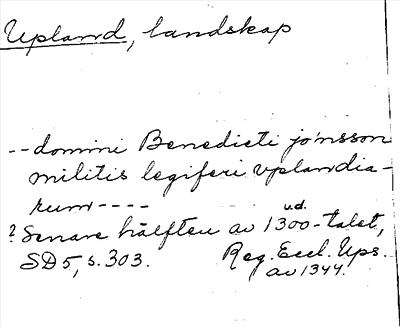 Upland, landskap
-- domini Benedicti jónsson
militis legiferi vplandia-
rum ----
u.d.
? Senare hälften av 1300-talet,
SD 5, s. 303. Reg. Eccl. Ups.
av 1344.